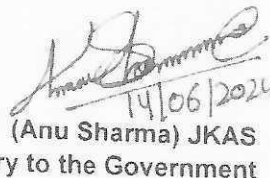 14/06/202
(Anu Sharma) JKAS
ry to the Government